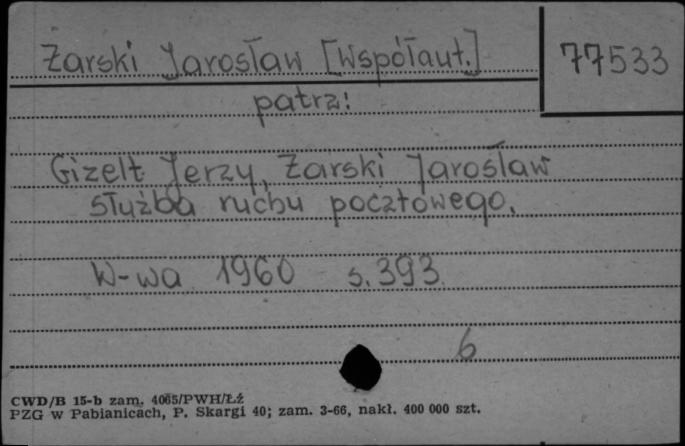 Żarski Jarosław [Współaut.]
77533
patrz:
Gizelt Jerzy, Żarski Jarosław
służba ruchu pocztowego.
W-wa 1960 s. 393
6
CWD/B 15-b zam. 4065/PWH/Łź
PZG w Pabianicach, P. Skargi 40; zam. 3-66, nakł. 400 000 szt.